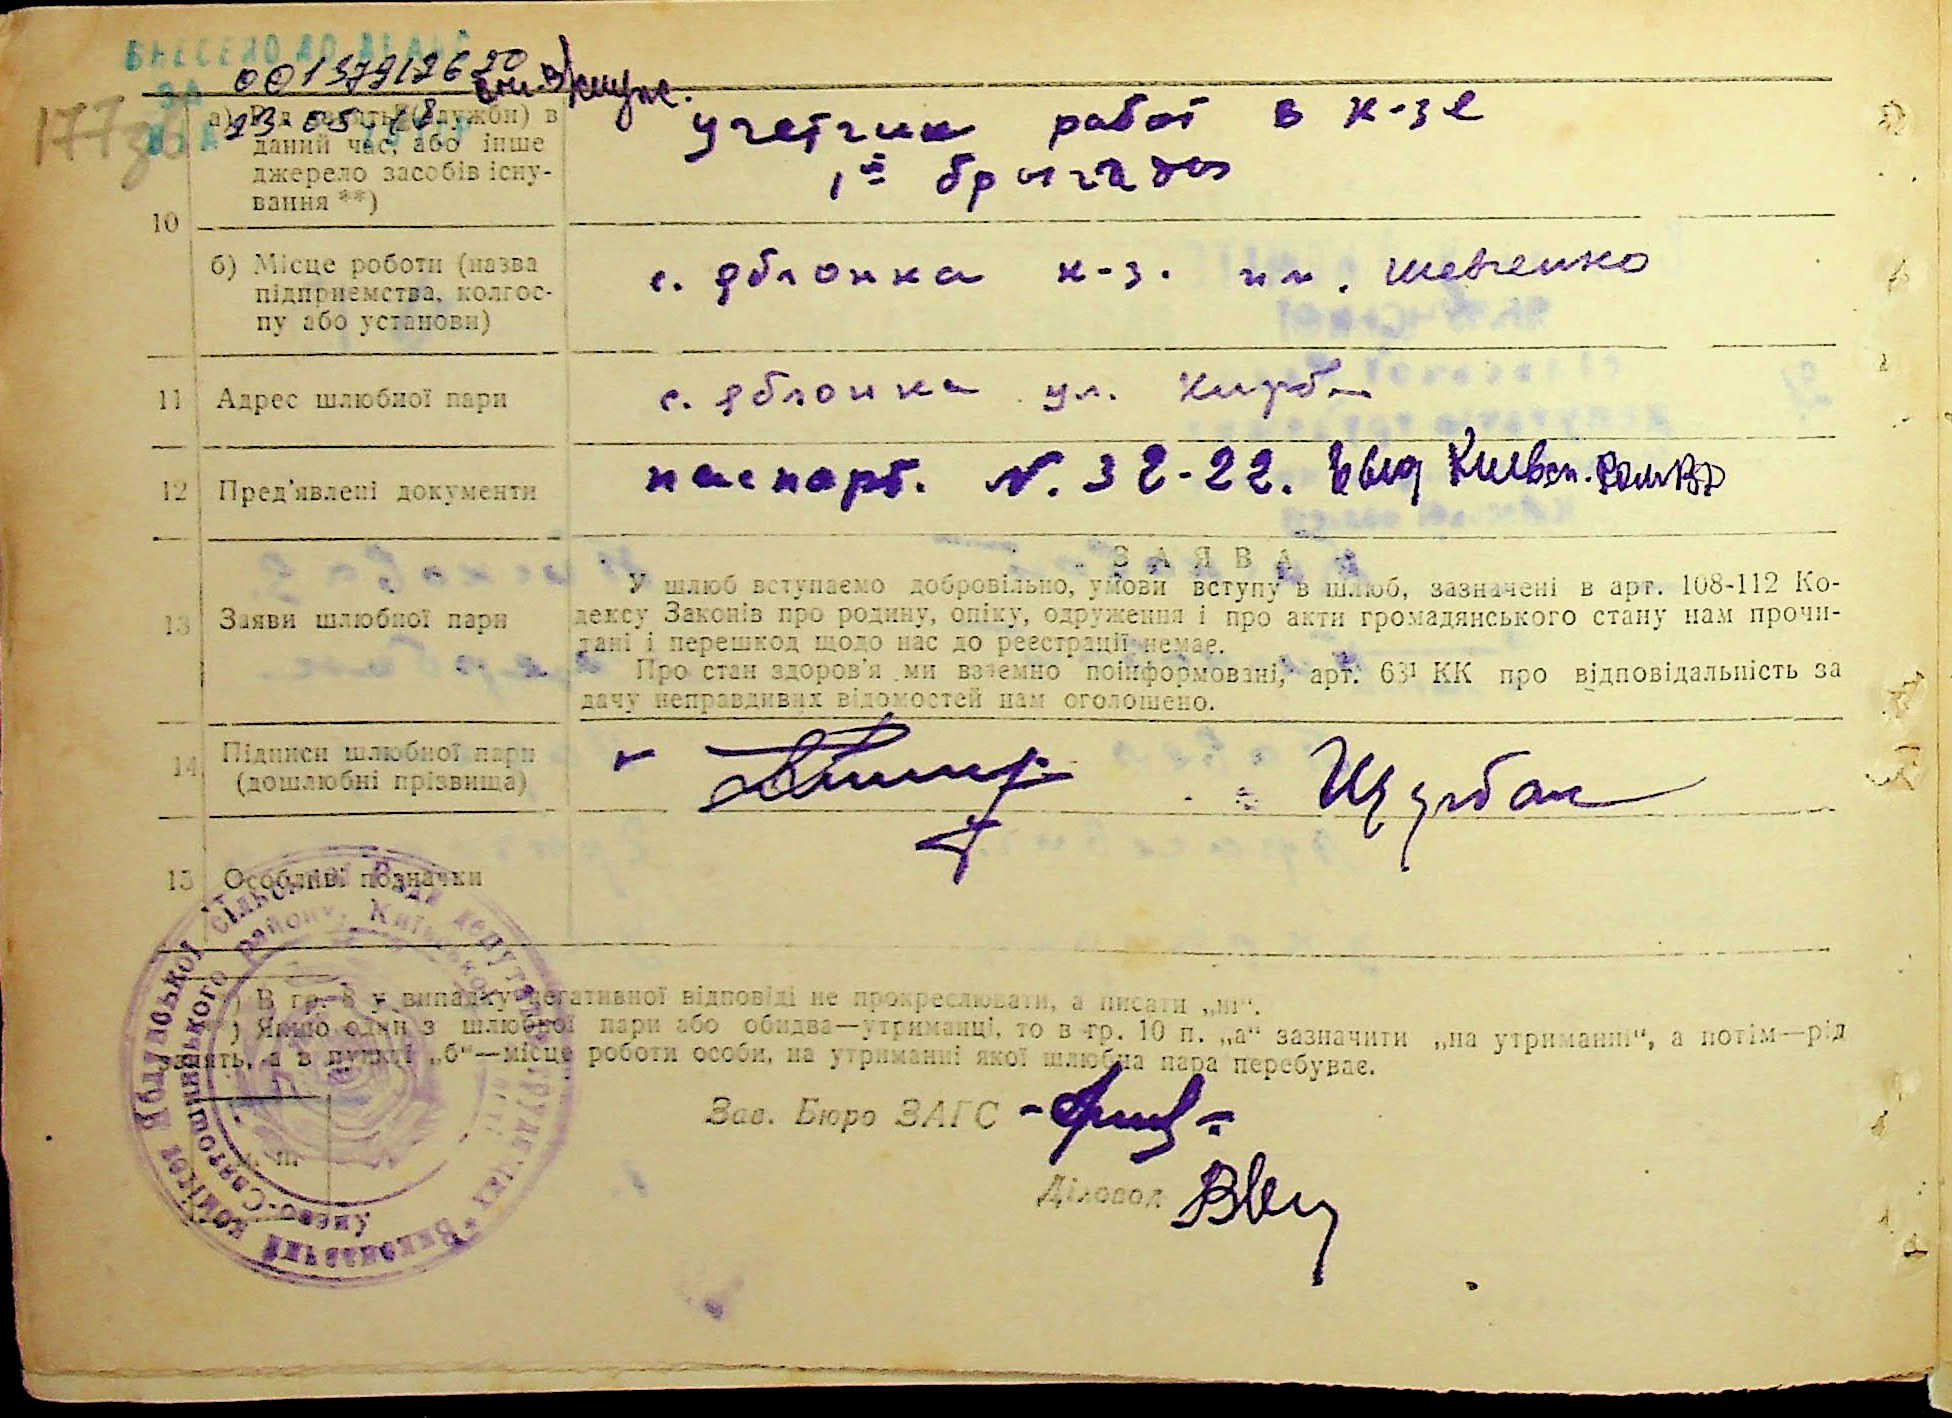 ВНЕСЕНО ДО ДРАЦС
ЗА
00137912620
177зв
13 05
10
а) Рід занять (служби) в
даний час, або інше
джерело засобів існу-
вання **)
учетчик работ в к-зе
1й бригады
б) Місце роботи (назва
підприємства, колгос-
пу або установи)
с. Яблонка к-з. им. Шевченко
11 Адрес шлюбної пари
с. Яблонка ул.
12 Пред'явлені документи
паспорт. N. 32-22. выд
13 Заяви шлюбної пари
ЗАЯВА
У шлюб вступаємо добровільно, умови вступу в шлюб, зазначені в арт. 108-112 Ко-
дексу Законів про родину, опіку, одруження і про акти громадянського стану нам прочи-
тані і перешкод щодо нас до реєстрації немає.
Про стан здоров'я ми взаємно поінформовані, арт. 63¹ КК про відповідальність за
дачу неправдивих відомостей нам оголошено.
14 Підписи шлюбної пари
(дошлюбні прізвища)
Щурбак
15 Особливі позначки
*) В гр. 8 у випадку негативної відповіді не прокреслювати, а писати „ні“.
**) Якщо один з шлюбної пари або обидва—утриманці, то в гр. 10 п. „а“ зазначити „на утриманні“, а потім—рід
занять, а в пункті „б“—місце роботи особи, на утриманні якої шлюбна пара перебуває.
Зав. Бюро ЗАГС
Діловод
Виконавчий комітет Яблунівської сільської Ради депутатів трудящих
Києво-Святошинського району, Київської області